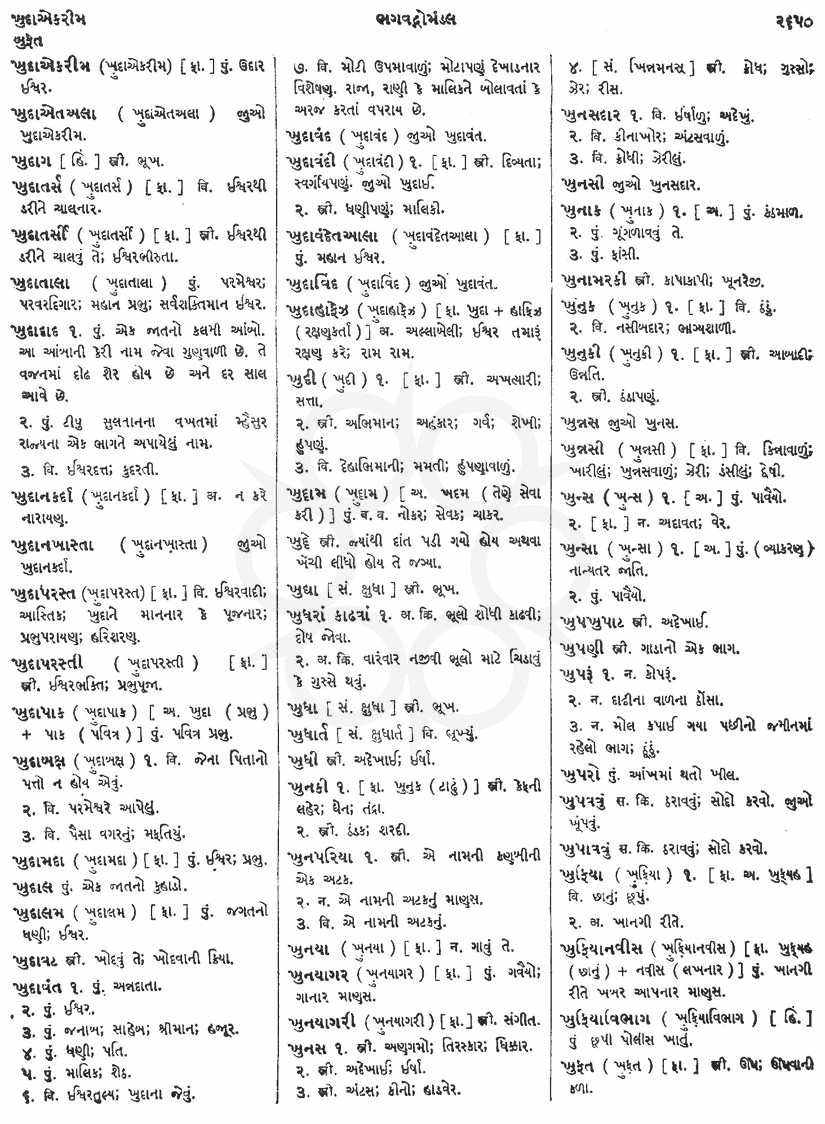 ખુદાએકરીમ
ભગવદ્ગોમંડલ
૨૬૫૦
ખુફત
ખુદાએકરીમ (ખુદાએકરીમ) [ ફા. ] પું. ઉદાર
ઈશ્વર.
ખુદાએતઅલા ( ખુદાએતઅલા ) જુઓ
ખુદાએકરીમ.
ખુદાગ [ હિં. ] સ્ત્રી. ભૂખ.
ખુદાતર્સ ( ખુદાતર્સ ) [ ફા. ] વિ. ઈશ્વરથી
ડરીને ચાલનાર.
ખુદાતર્સી ( ખુદાતર્સી ) [ ફા. ] સ્ત્રી. ઈશ્વરથી
ડરીને ચાલવું તે; ઈશ્વરભીરુતા.
ખુદાતાલા ( ખુદાતાલા ) પું. પરમેશ્વર;
પરવરદિગાર; મહાન પ્રભુ; સર્વશક્તિમાન ઈશ્વર.
ખુદાદાદ ૧. પું. એક જાતનો કલમી આંબો.
આ આંબાની કેરી નામ જેવા ગુણવાળી છે. તે
વજનમાં દોઢ શેર હોય છે અને દર સાલ
આવે છે.
૨. પું. ટીપુ સુલતાનના વખતમાં મ્હૈસુર
રાજ્યના એક ભાગને અપાયેલું નામ.
૩. વિ. ઈશ્વરદત્ત; કુદરતી.
ખુદાનકર્દા ( ખુદાનકર્દા ) [ ફા. ] અ. ન કરે
નારાયણ.
ખુદાનખાસ્તા ( ખુદાનખાસ્તા ) જુઓ
ખુદાનકર્દા.
ખુદાપરસ્ત (ખુદાપરસ્ત) [ ફા. ] વિ. ઈશ્વરવાદી;
આસ્તિક; ખુદાને માનનાર કે પૂજનાર;
પ્રભુપરાયણ; હરિશરણ.
ખુદાપરસ્તી ( ખુદાપરસ્તી ) [ ફા. ]
સ્ત્રી. ઈશ્વરભક્તિ; પ્રભુપૂજા.
ખુદાપાક ( ખુદાપાક ) [ અ. ખુદા ( પ્રભુ )
+ પાક ( પવિત્ર ) ] પું. પવિત્ર પ્રભુ.
ખુદાબક્ષ ( ખુદાબક્ષ ) ૧. વિ. જેના પિતાનો
પત્તો ન હોય એવું.
૨. વિ. પરમેશ્વરે આપેલું.
૩. વિ. પૈસા વગરનું; મફતિયું.
ખુદામદા ( ખુદામદા ) [ ફા. ] પું. ઈશ્વર; પ્રભુ.
ખુદાલ પું. એક જાતનો કુહાડો.
ખુદાલમ ( ખુદાલમ ) [ ફા. ] પું. જગતનો
ધણી; ઈશ્વર.
ખુદાવટ સ્ત્રી. ખોદવું તે; ખોદવાની ક્રિયા.
ખુદાવંત ૧. પું. અન્નદાતા.
૨. પું. ઈશ્વર.
૩. પું. જનાબ; સાહેબ; શ્રીમાન; હજૂર.
૪. પું. ધણી; પતિ.
૫. પું. માલિક; શેઠ.
૬. વિ. ઈશ્વરતુલ્ય; ખુદાના જેવું.
૭. વિ. મોટી ઉપમાવાળું; મોટાપણું દેખાડનાર
વિશેષણ. રાજા, રાણી કે માલિકને બોલાવતાં કે
અરજ કરતાં વપરાય છે.
ખુદાવંદ ( ખુદાવંદ ) જુઓ ખુદાવંત.
ખુદાવંદી (ખુદાવંદી ) ૧. [ ફા. ] સ્ત્રી. દિવ્યતા;
સ્વર્ગીયપણું. જુઓ ખુદાઈ.
૨. સ્ત્રી. ધણીપણું; માલિકી.
ખુદાવંદેતઆલા ( ખુદાવંદેતઆલા ) [ ફા. ]
પું. મહાન ઈશ્વર.
ખુદાવિંદ ( ખુદાવિંદ ) જુઓ ખુદાવંત.
ખુદાહાફેઝ ( ખુદાહાફેઝ ) [ ફા. ખુદા + હાફિઝ
( રક્ષણકર્તા ) ] અ. અલ્લાબેલી; ઈશ્વર તમારું
રક્ષણ કરે; રામ રામ.
ખુદી ( ખુદી ) ૧. [ ફા. ] સ્ત્રી. અખત્યારી;
સત્તા.
૨. સ્ત્રી. અભિમાન; અહંકાર; ગર્વ; શેખી;
હુંપણું.
૩. વિ. દેહાભિમાની; મમતી; હુંપણાવાળું.
ખુદામ ( ખુદામ ) [ અ. ખદમ ( તેણે સેવા
કરી ) ] પું. બ. વ. નોકર; સેવક; ચાકર.
ખુદ્દે સ્ત્રી. જ્યાંથી દાંત પડી ગયો હોય અથવા
ખેંચી લીધો હોય તે જગ્યા.
ખુદ્યા [ સં. ક્ષુધા ] સ્ત્રી. ભૂખ.
ખુધરાં કાઢવાં ૧. અ. ક્રિ. ભૂલો શોધી કાઢવી;
દોષ જોવા.
૨. અ. ક્રિ. વારંવાર નજીવી ભૂલો માટે ચિડાવું
કે ગુસ્સે થવું.
ખુધા [ સં. ક્ષુધા ] સ્ત્રી. ભૂખ.
ખુધાર્ત [ સં. ક્ષુધાર્ત ] વિ. ભૂખ્યું.
ખુધી સ્ત્રી. અદેખાઈ; ઈર્ષા.
ખુનકી ૧. [ ફા. ખુનુક ( ટાઢું ) ] સ્ત્રી. કેફની
લહેર; ઘેન; તંદ્રા.
૨. સ્ત્રી. ઠંડક; શરદી.
ખુનપરિયા ૧. સ્ત્રી. એ નામની કણબીની
એક અટક.
૨. ન. એ નામની અટકનું માણસ.
૩. વિ. એ નામની અટકનું.
ખુનયા ( ખુનયા ) [ ફા. ] ન. ગાવું તે.
ખુનયાગર ( ખુનયાગર ) [ ફા. ] પું. ગવૈયો;
ગાનાર માણસ.
ખુનયાગરી (ખુનયાગરી ) [ ફા. ] સ્ત્રી. સંગીત.
ખુનસ ૧. સ્ત્રી. અણગમો; તિરસ્કાર; ધિક્કાર.
૨. સ્ત્રી. અદેખાઈ; ઈર્ષા.
૩. સ્ત્રી. અંટસ; કીનો; હાડવેર.
૪. [ સં. ખિન્નમનસ્ ] સ્ત્રી. ક્રોધ; ગુસ્સો;
ઝેર; રીસ.
ખુનસદાર ૧. વિ. ઈર્ષાળુ; અદેખું.
૨. વિ. કીનાખોર; અંટસવાળું.
૩. વિ. ક્રોધી; ઝેરીલું.
ખુનસી જુઓ ખુનસદાર.
ખુનાક ( ખુનાક ) ૧. [ અ. ] પું. ઠંડમાળ.
૨. પું. ગૂંગળાવવું તે.
૩. પું. ફાંસી.
ખુનામરકી સ્ત્રી. કાપાકાપી; ખૂનરેજી.
ખુનુક ( ખુનુક ) ૧. [ ફા. ] વિ. ઠંડું.
૨. વિ. નસીબદાર; ભાગ્યશાળી.
ખુનુકી ( ખુનુકી ) ૧. [ ફા. ] સ્ત્રી. આબાદી;
ઉન્નતિ.
૨. સ્ત્રી. ઠંડાપણું.
ખુન્નસ જુઓ ખુનસ.
ખુન્નસી ( ખુન્નસી ) [ ફા. ] વિ. કિન્નાવાળું;
ખારીલું; ખુન્નસવાળું; ઝેરી; ડંસીલું; દ્વેષી.
ખુન્સ ( ખુન્સ ) ૧. [ અ. ] પું. પાવૈયો.
૨. [ ફા. ] ન. અદાવત; વેર.
ખુન્સા ( ખુન્સા ) ૧. [ અ. ] પું. ( વ્યાકરણ )
નાન્યતર જાતિ.
૨. પું. પાવૈયો.
ખુપખુપાટ સ્ત્રી. અદેખાઈ.
ખુપણી સ્ત્રી. ગાડાનો એક ભાગ.
ખુપરું ૧. ન. કોપરું.
૨. ન. દાઢીના વાળના ઠોંસા.
૩. ન. મોલ કપાઈ ગયા પછીનો જમીનમાં
રહેલો ભાગ; ઠૂંઠું.
ખુપરો પું. આંખમાં થતો ખીલ.
ખુપવવું સ. ક્રિ. ઠરાવવું; સોદો કરવો. જુઓ
ખૂંપવું.
ખુપાવવું સ. ક્રિ. ઠરાવવું; સોદો કરવો.
ખુફિયા ( ખુફિયા ) ૧. [ ફા. અ. ખુફ્યહ ]
વિ. છાનું; છૂપું.
૨. અ. ખાનગી રીતે.
ખુફિયાનવીસ ( ખુફિયાનવીસ ) [ ફા. ખુફ્યહ
( છાનું ) + નવીસ ( લખનાર ) ] પું. ખાનગી
રીતે ખબર આપનાર માણસ.
ખુફિયાવિભાગ ( ખુફિયાવિભાગ ) [ હિં. ]
પું છૂપી પોલીસ ખાતું.
ખુફત ( ખુફત ) [ ફા. ] સ્ત્રી. ઊંઘ; ઊંઘવાની
કળા.